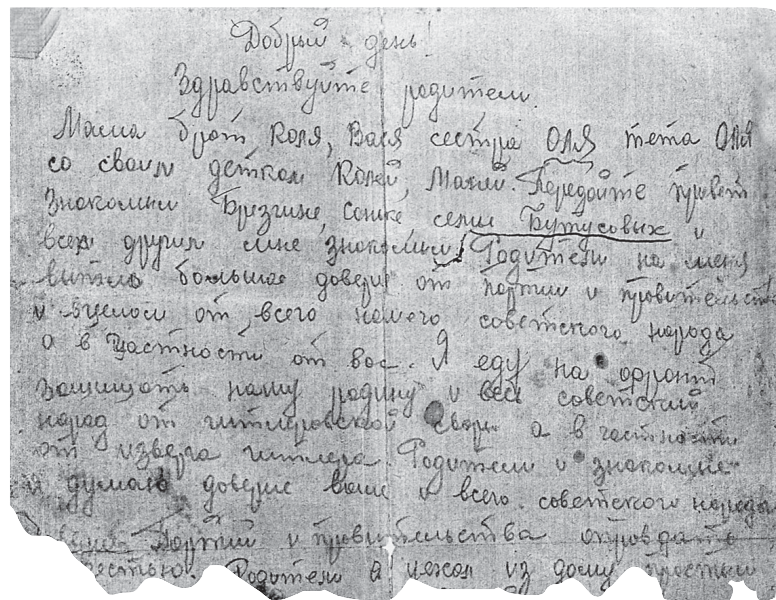 Добрый день!
Здравствуйте родители.
Мама брат Коля, Вася сестра Оля тета Оля
со своим деткам Колей, Маней. Передайте привет
знакомым Брезгине, Сошке семии Бутусовых и
всем другим мне знакомым. Родители на меня
выпало большое доверие от партии и провительств
и вцелом от всего нашего советского народа
а в частности от вас. Я еду на фронт
защищать нашу родину и весь советский
народ от гитлеровской свори а в частности
от изверга гитлера. Родители и знакомые
я думаю доверие ваше и всего советского народа
Партии и провительства опровдать
честью. Родители я уехал из дому простым